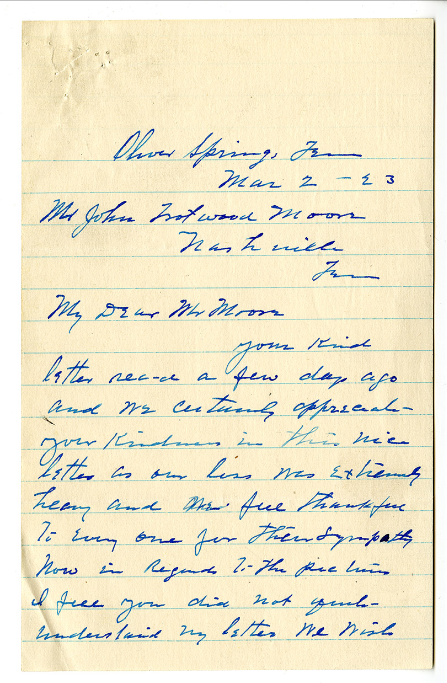 Oliver Springs, Tenn
Mar 2 - 23
Mr John Trotwood Moore
Nashville
Tenn
My Dear Mr Moore
your Kind
letter rea-d a few days ago
and we certainly appreciate
your Kindness in this nice
letter as our loss was Extremely
heavy and we feel thankful
To Every one for their Sympathy
Now in Regards To the pictures
I feel you did not quite
understand my letter We Wish